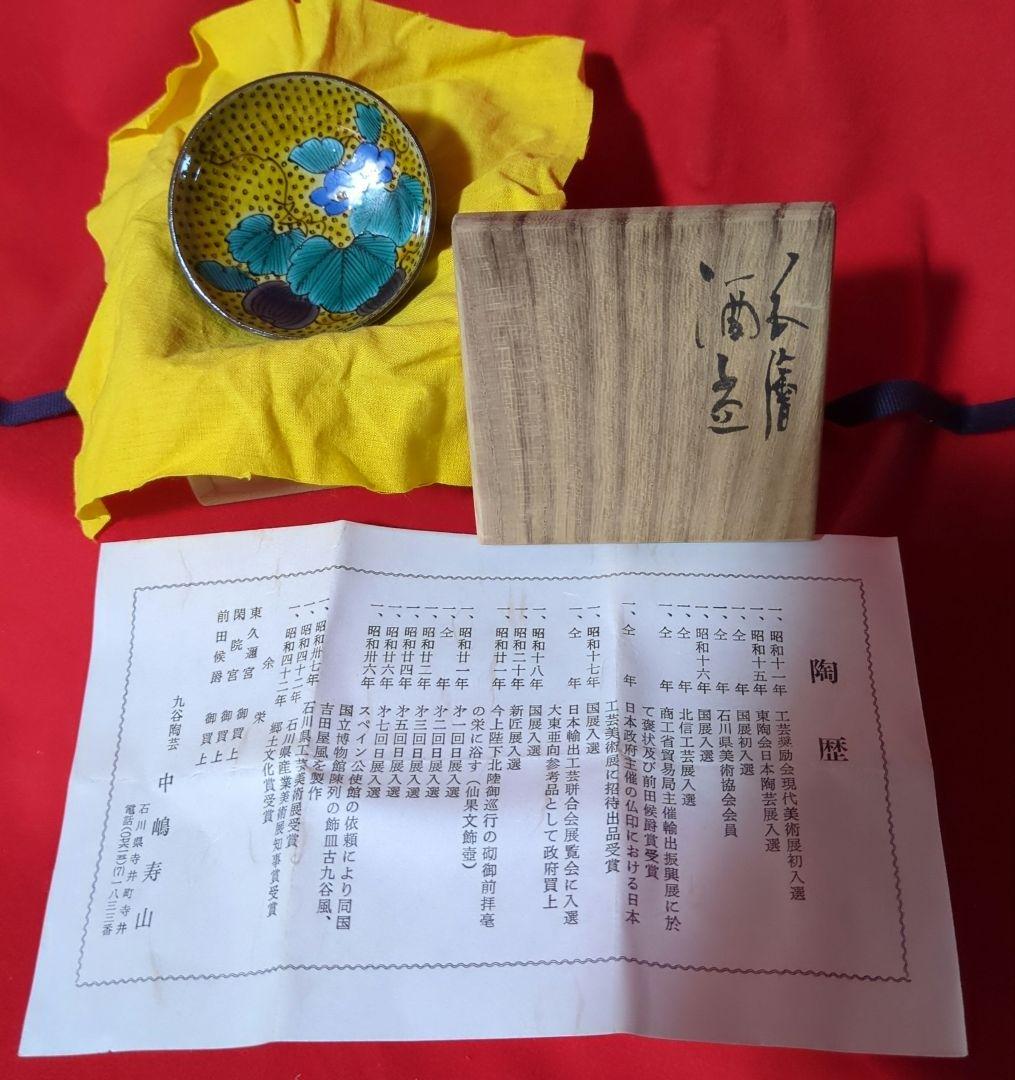 色繪
酒盃
陶歴
一、昭和十一年 工芸奨励会現代美術展初入選
一、昭和十五年 東陶会日本陶芸展入選
一、仝年 国展初入選
一、仝年 石川県美術協会会員
一、昭和十六年 国展入選
一、仝年 北信工芸展入選
一、仝年 商工省貿易局主催輸出振興展に於
て褒状及び前田候爵賞受賞
一、仝年 日本政府主催の仏印における日本
工芸美術展に招待出品受賞
一、昭和十七年 国展入選
一、仝年 日本輸出工芸联合会展覧会に入選
大東亜向参考品として政府買上
一、昭和十八年 国展入選
一、昭和二十年 新匠展入選
一、昭和廿一年 今上陛下北陸御巡行の砌御前拝毫
の栄に浴す(仙果文飾壺)
一、昭和廿一年 㐧一回日展入選
一、仝年 㐧二回日展入選
一、昭和廿二年 㐧三回日展入選
一、昭和廿四年 㐧五回日展入選
一、昭和廿六年 㐧七回日展入選
一、昭和卅六年 スペイン公使館の依頼により同国
国立博物館陳列の飾皿古九谷風、
吉田屋風を製作
一、昭和卅七年 石川県工芸美術展受賞
一、昭和四十二年 石川県産業美術展知事賞受賞
一、昭和四十二年 郷土文化賞受賞
余栄
東久邇宮 御買上
閑院宮 御買上
前田候爵 御買上
九谷陶芸 中嶋寿山
石川県寺井町寺井